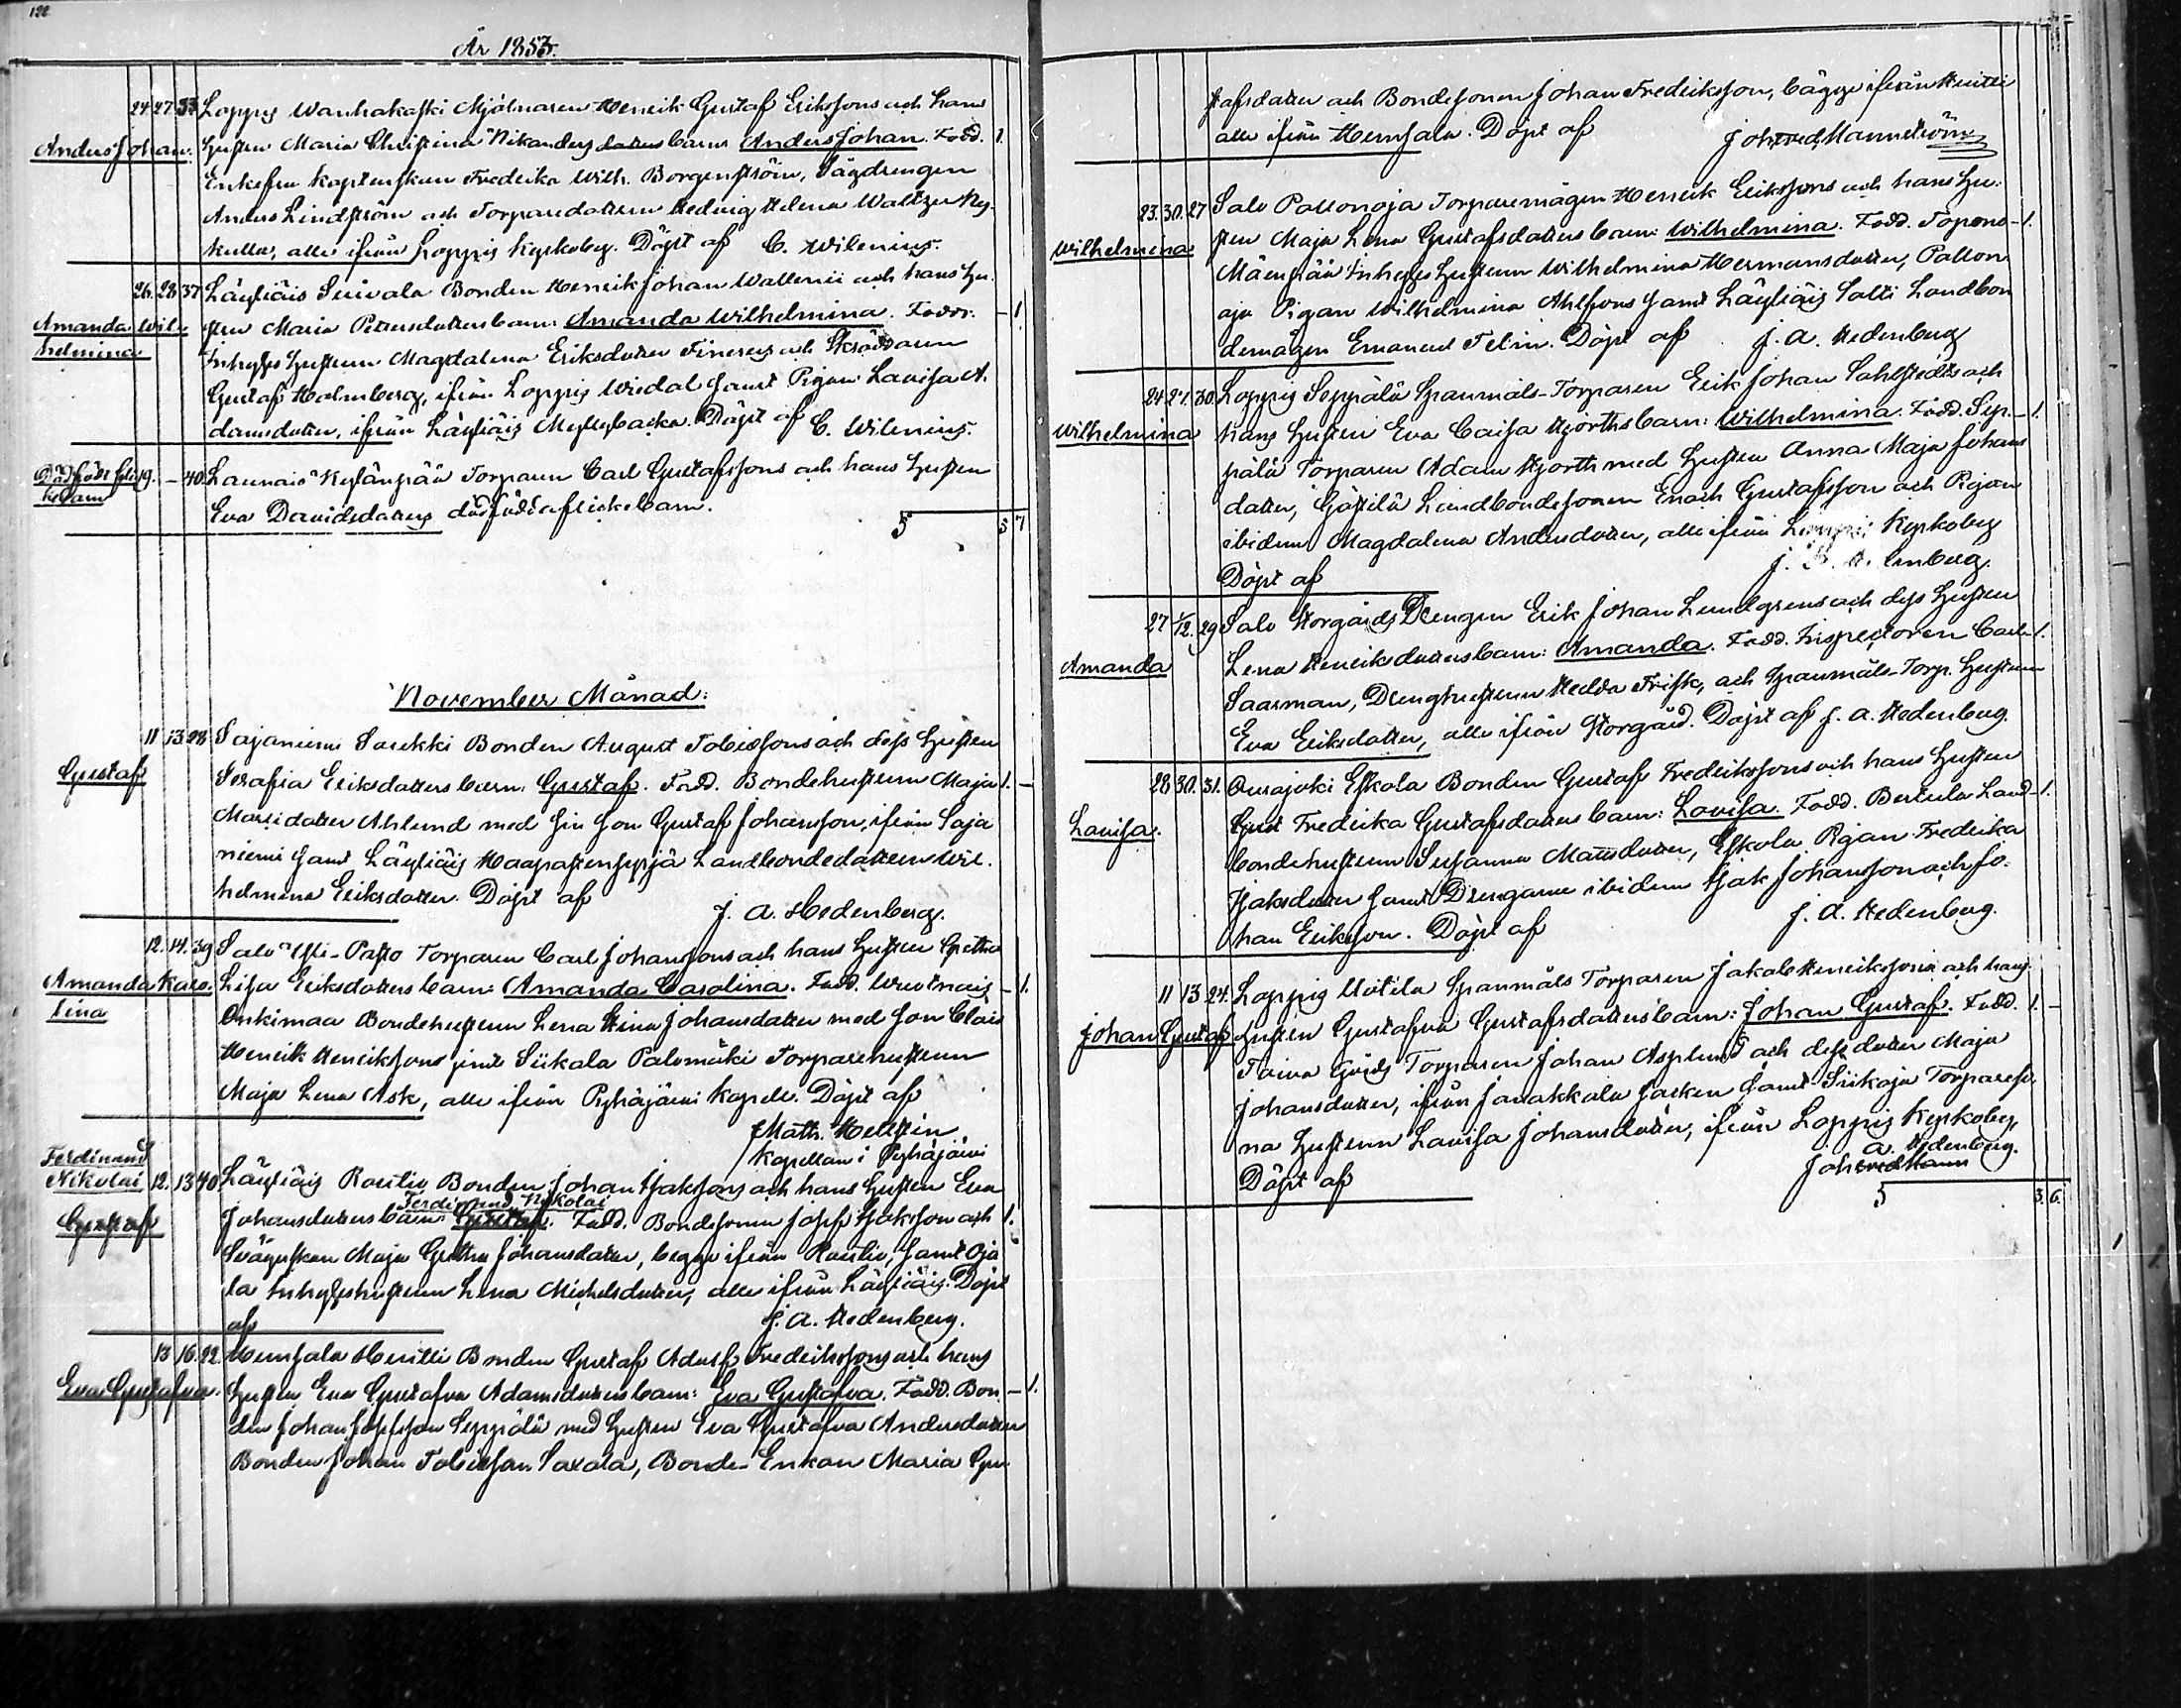 122
År 1853.
24 27 33 Loppis Wanhakoski Mjölnaren Henrik Gustaf Eriksons och hans
Anders Johan. Hustru Maria Christina Nikanders barn Anders Johan. Fadd. 1.
Enkefru Kaptenskan Fredrika Wilh. Borgenström, Sågdrengen
Anders Lindström och Torparedottern Hedvig Helena Waltzer
kulla, alle ifrån Loppis Kyrkoby. Döpt af C. Wilenius.
26. 28 37 Läyliäis Suivala Bonden Henrik Johan Wallenii och hans Hu-
Amanda Wil- stru Maria Petersdotters barn: Amanda Wilhelmina. Faddr. - 1
helmina Inhyses Hustrun Magdalena Eriksdotter Finerus och Skräddaren
Gustaf Holmberg, ifrån Loppis Wiedal samt Pigan Lavisa A-
damsdotter, ifrån Läyliäis Myllybacka. Döpt af C. Wilenius.
Dödfödt flic- 19. - 40. Launais Kylänpää Torparen Carl Gustafssons och hans Hustru
kebarn Eva Davidsdotters dödfödda flickebarn. 5 5 7
November Månad:
11 13 28 Sajaniemi Sarekki Bonden August Tobiessons och dess Hustru
Gustaf Serafia Eriksdotters barn: Gustaf. Fadd. Bondehustrun Maja 1. -
Matsdotter Ahlund med sin son Gustaf Johansson, ifrån Saja
niemi samt Läyliäis Haapastensyrjä Landbondedottern Wil-
helmina Eriksdotter. Döpt af J. A. Hedenberg.
12. 14. 39 Salo Yli-Pasto Torparen Carl Johanssons och hans Hustru Gretha
Amanda Karo- Lisa Eriksdotters barn: Amanda Carolina. Fadd. - 1.
lina Onkimaa Bondehustrun Lena Stina Johansdotter med son Claës
Henrik Henriksons jemte Siikala Palomäki Torparehustrun
Maja Lena Ask, alle ifrån Pyhäjärvi Kapell. Döpt af
Math. Hellstén
Kapellan i Pyhäjärvi
Ferdinand
Nikolai 12. 13 40 Läyliäis Rautio Bonden Johan Isaksons och hans Hustru Eva
Ferdinand Nikolai
Gustaf Johansdotters barn: Gustaf. Fadd. Bondesonen Josef Isakson och 1.
Svägerskan Maja Gretha Johansdotter, begge ifrån Rautio, samt Oja
la Inhyseshustrun Lena Michelsdotter, alle ifrån Läyliäis. Döpt
af J. A. Hedenberg.
13 16. 22. Hemsala Heritti Bonden Gustaf Adolf Fredrikssons och hans
Eva Gustafva. Hustru Eva Gustafva Adamsdotters barn: Eva Gustafva. Fadd. Bon- - 1.
den Johan Josefsson Seppälä med Hustru Eva Gustafva Andersdotter
Bonden Johan Tobiesson Saxala, Bonde-Enkan Maria Gu-
stafsdotter och Bondesonen Johan Fredrikson, bägge ifrån Heritti
alle ifrån Hemsala. Döpt af Joh: Fred. Mannström
23. 30. 27 Salo Patonoja Torparemågen Henrik Eriksons och hans Hu-
Wilhelmina stru Maja Lena Gustafsdotters barn: Wilhelmina. Fadd. Topeno - 1.
Mäenpää Inhyses Hustrun Wilhelmina Hermansdotter, Paton
oja Pigan Wilhelmina Ahlfors samt Läyliäis Salti Landbon
demågen Emanuel Felin. Döpt af J. A. Hedenberg
24 27. 30. Loppis Seppälä Spanmåls-Torparen Erik Johan Sahlstedts och
Wilhelmina hans Hustru Eva Caisa Hjorths barn: Wilhelmina. Fadd. Sep- - 1.
pälä Torparen Adam Hjorth med Hustru Anna Maja Johans
dotter, Landbondesonen Enoch Gustafsson och Pigan
ibidem Magdalena Andersdotter, alle ifrån Loppis Kyrkoby
Döpt af J. A. Hedenberg.
27 1/12. 29 Salo Horgårds Drengen Erik Johan Lundgrens och dess Hustru
Amanda Lena Henriksdotters barn: Amanda. Fadd. Inspectoren Carl - 1.
Saarman, Drenghustrun Hedda Frisk, och Spanmåls-Torp. Hustrun
Eva Eriksdotter, alle ifrån Horgård. Döpt af J. A. Hedenberg.
28 30. 31. Ourajoki Eskola Bonden Gustaf Fredrikssons och hans Hustru
Lavisa. Fredrika Gustafsdotters barn: Lovisa. Fadd. Bertula Land- - 1.
bondehustrun Susanna Mattsdotter, Eskola Pigan Fredrika
Isaksdotter samt Drengarne ibidem Isak Johansson och Jo-
han Eriksson. Döpt af J. A. Hedenberg.
11 13 24. Loppis Uotila Spanmåls Torparen Jakob Henrikssons och hans
Johan Gustaf Hustru Gustafva Gustafsdotters barn: Johan Gustaf. Fadd. 1. -
Gårds Torparen Johan Asplund och dess dotter Maja
Johansdotter, ifrån Janakkala socken samt Siikoja Torparesö-
na Hustrun Lavisa Johansdotter, ifrån Loppis Kyrkoby,
Döpt af Joh: A. Hedenberg.
5 3. 6.